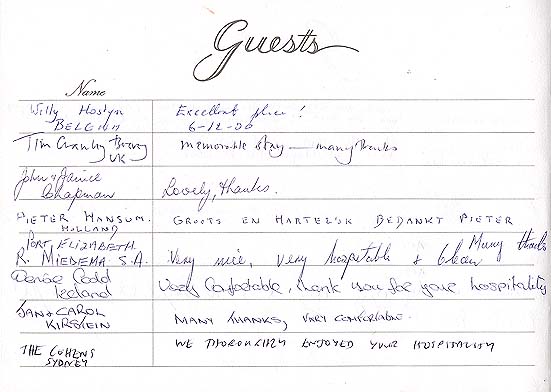 Guests
Name
Willy Hostyn Excellent place!
BELGIUM 6-12-00
Tim Memorable stay — many thanks
UK
John & Janice Lovely, thanks.
Chapman
PIETER HANSUM. GROOTS EN HARTELIJK BEDANKT PIETER
HOLLAND
PORT ELIZABETH Many thanks
R. MIEDEMA S.A. Very nice, very hospitable & clean
Denise Codd Very Comfortable, thank you for your hospitality
Ireland
JAN & CAROL MANY THANKS, VERY COMFORTABLE.
KIRSTEIN
THE COHENS WE THOROUGHLY ENJOYED YOUR HOSPITALITY
SYDNEY